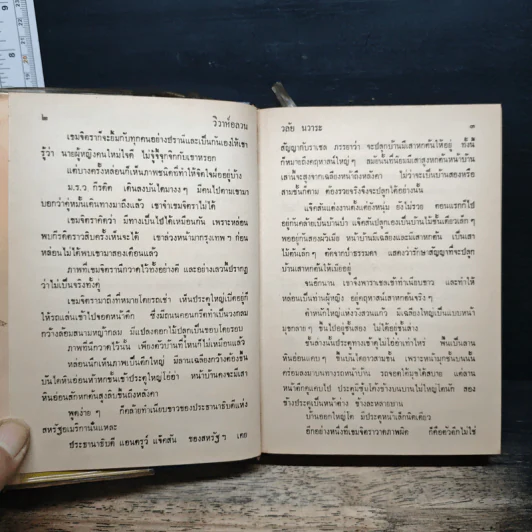 ๒ วิวาห์อลวน
เขมจิตราก็จะยิ้มกับทุกคนอย่างปรานีและเป็นกันเองให้เขา
รู้ว่า นายผู้หญิงคนใหม่ใจดี ไม่จู้จี้จุกจิกกับเขาหรอก
แต่บางครั้งหล่อนก็เห็นภาพชนิดที่ทำให้จิตใจไม่อยู่บ้าง
ม.ร.ว. กีรติ เดินลงบันไดมางงๆ มีคนไปตามเขามา
บอกว่าคู่หมั้นเดินทางมาถึงแล้ว เขาจำเขมจิตราไม่ได้
เขมจิตราคิดว่า มีทางเป็นไปได้เหมือนกัน เพราะหล่อน
พบกีรติคราวสิบครั้งเห็นจะได้ เขาล่วงหน้ามากรุงเทพฯ ก่อน
หล่อนไม่ได้พบเขามาสองเดือนแล้ว
ภาพที่เขมจิตรานึกวาดไว้ทั้งอย่างดี และอย่างเลวนี้ปรากฏ
ว่าไม่เป็นจริงทั้งคู่
เขมจิตรามาถึงที่หมายโดยรถเช่า เห็นประตูใหญ่เปิดอยู่ก็
ให้รถแล่นเข้าไปจอดหน้าตึก ซึ่งมีถนนคอนกรีตทำเป็นวงกลม
กว้างล้อมสนามหญ้ากลม มีแปลงดอกไม้ปลูกเป็นขอบโดยรอบ
ภาพที่นึกวาดไว้นั้น เพียงตัวบ้านที่ไหนก็ไม่เหมือนแล้ว
หล่อนนึกเห็นภาพเป็นตึกใหญ่ มีลานเฉลียงกว้างต้องขึ้น
บันไดหินอ่อนห้าหกขั้นเข้าประตูใหญ่โอ่อ่า หน้าบ้านคงจะมีเสา
หินอ่อนสักหกต้นสูงลิบขึ้นถึงหลังคา
พูดง่ายๆ ก็คล้ายทำเนียบขาวของประธานาธิบดีแห่ง
สหรัฐอเมริกานั่นแหละ
ประธานาธิบดี แอนดรูว์ แจ๊คสัน ของสหรัฐฯ เคย
วลัย นวาระ ๓
สัญญากับราเชล ภรรยาว่า จะปลูกบ้านมีเสาหกต้นให้อยู่ ทั้งนี้
ก็หมายถึงคฤหาสน์ใหญ่ๆ สมัยนั้นที่นิยมมีเสาสูงหกต้นหน้าบ้าน
เสานี้จะสูงจากเฉลียงหน้าถึงหลังคา ไม่ว่าจะเป็นบ้านสองหรือ
สามชั้นก็ตาม ต้องรวยจริงจึงจะปลูกได้อย่างนั้น
แจ๊คสันแต่งงานตั้งแต่ยังหนุ่ม ยังไม่รวย ตอนแรกก็ไป
อยู่กันคล้ายเป็นบ้านป่า แจ๊คสันปลูกเองเป็นบ้านไม้ชั้นเดียวเล็กๆ
พออยู่กันสองผัวเมีย หน้าบ้านมีเฉลียงและมีเสาหกต้น เป็นเสา
ไม้ต้นเล็กๆ ตัดจากป่าธรรมดา แสดงว่ารักษาสัญญาที่จะปลูก
บ้านเสาหกต้นให้เมียอยู่
จนอีกนาน เขาจึงพาราเชลเข้าทำเนียบขาว และทำให้
หล่อนเป็นท่านผู้หญิง อยู่คฤหาสน์เสาหกต้นจริงๆ
ตำหนักใหญ่แห่งรั้วสวนแก้ว มีเฉลียงใหญ่เป็นแบบหน้า
มุขกลายๆ ขึ้นไปอยู่ชั้นสอง ไม่ได้อยู่ชั้นล่าง
ชั้นล่างนั้นประตูทางเข้าดูไม่โอ่อ่าเท่าไหร่ พ้นเป็นลาน
หินอ่อนแคบๆ ขึ้นบันไดยาวสามขั้น เพราะหน้ามุขชั้นบนนั้น
คร่อมลงมาบนทางรถหน้าบ้าน รถจอดได้มุขได้สบาย แต่ลาน
หน้าตึกดูแคบไป ประตูมีซุ้มโค้งข้างบนบานไม่ใหญ่โตนัก สอง
ข้างประตูเป็นหน้าต่าง ข้างละหลายบาน
บ้านออกใหญ่โต มีประตูหน้าเล็กนิดเดียว
อีกอย่างหนึ่งที่เขมจิตราวาดภาพผิด ก็คือตัวตึกไม่ใช่